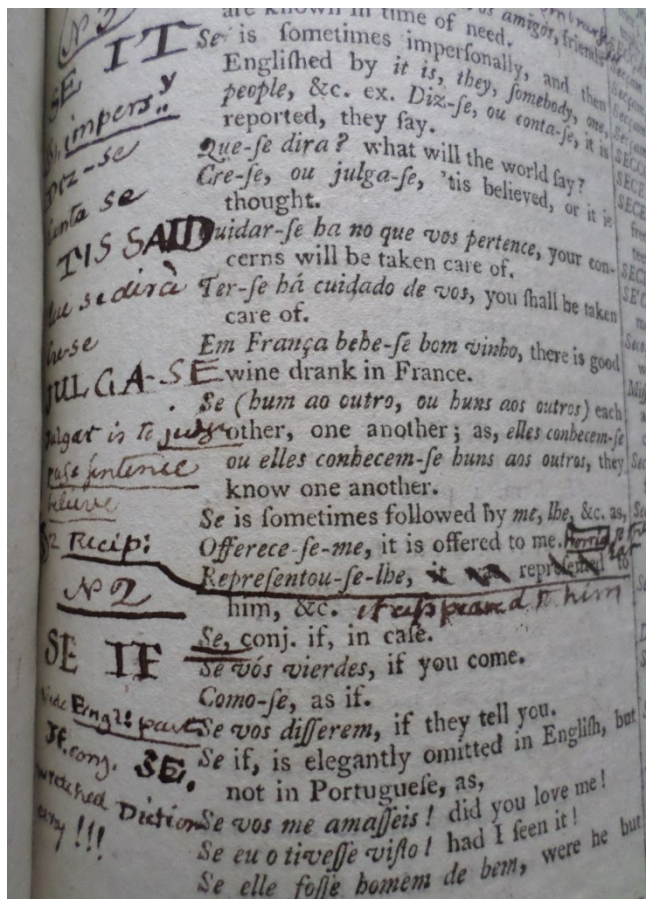 are known in time of need.
Se is sometimes impersonally, and then
Englished by it is, they, somebody, one,
people, &c. ex. Diz-se, ou conta-se, it is
reported, they say.
Que-se dira? what will the world say?
Cre-se, ou julga-se, 'tis believed, or it is
thought.
Cuidar-se ha no que vos pertence, your con-
cerns will be taken care of.
Ter-se há cuidado de vos, you shall be taken
care of.
Em França bebe-se bom vinho, there is good
wine drank in France.
Se (hum ao outro, ou huns aos outros) each
other, one another; as, elles conhecem-se
ou elles conhecem-se huns aos outros, they
know one another.
Se is sometimes followed by me, lhe, &c. as,
Offerece-se-me, it is offered to me. Horrid
Representou-se-lhe, it was represented to
him, &c. it appeared to him
Se, conj. if, in case.
Se vós vierdes, if you come.
Como-se, as if.
Se vos disserem, if they tell you.
Se if, is elegantly omitted in English, but
not in Portuguese, as,
Se vos me amasseis! did you love me!
Se eu o tivesse visto! had I seen it!
Se elle fosse homem de bem, were he but
No 3
SE IT
impersy
Diz-se
conta se
TIS SAID
Que se dirà
Cre-se
JULGA-SE
Julgar is to judge
pass sentence
believe
Recip:
No 2
SE IF
Vide Engl: part
If. conj. SE.
wretched Diction
ary !!!